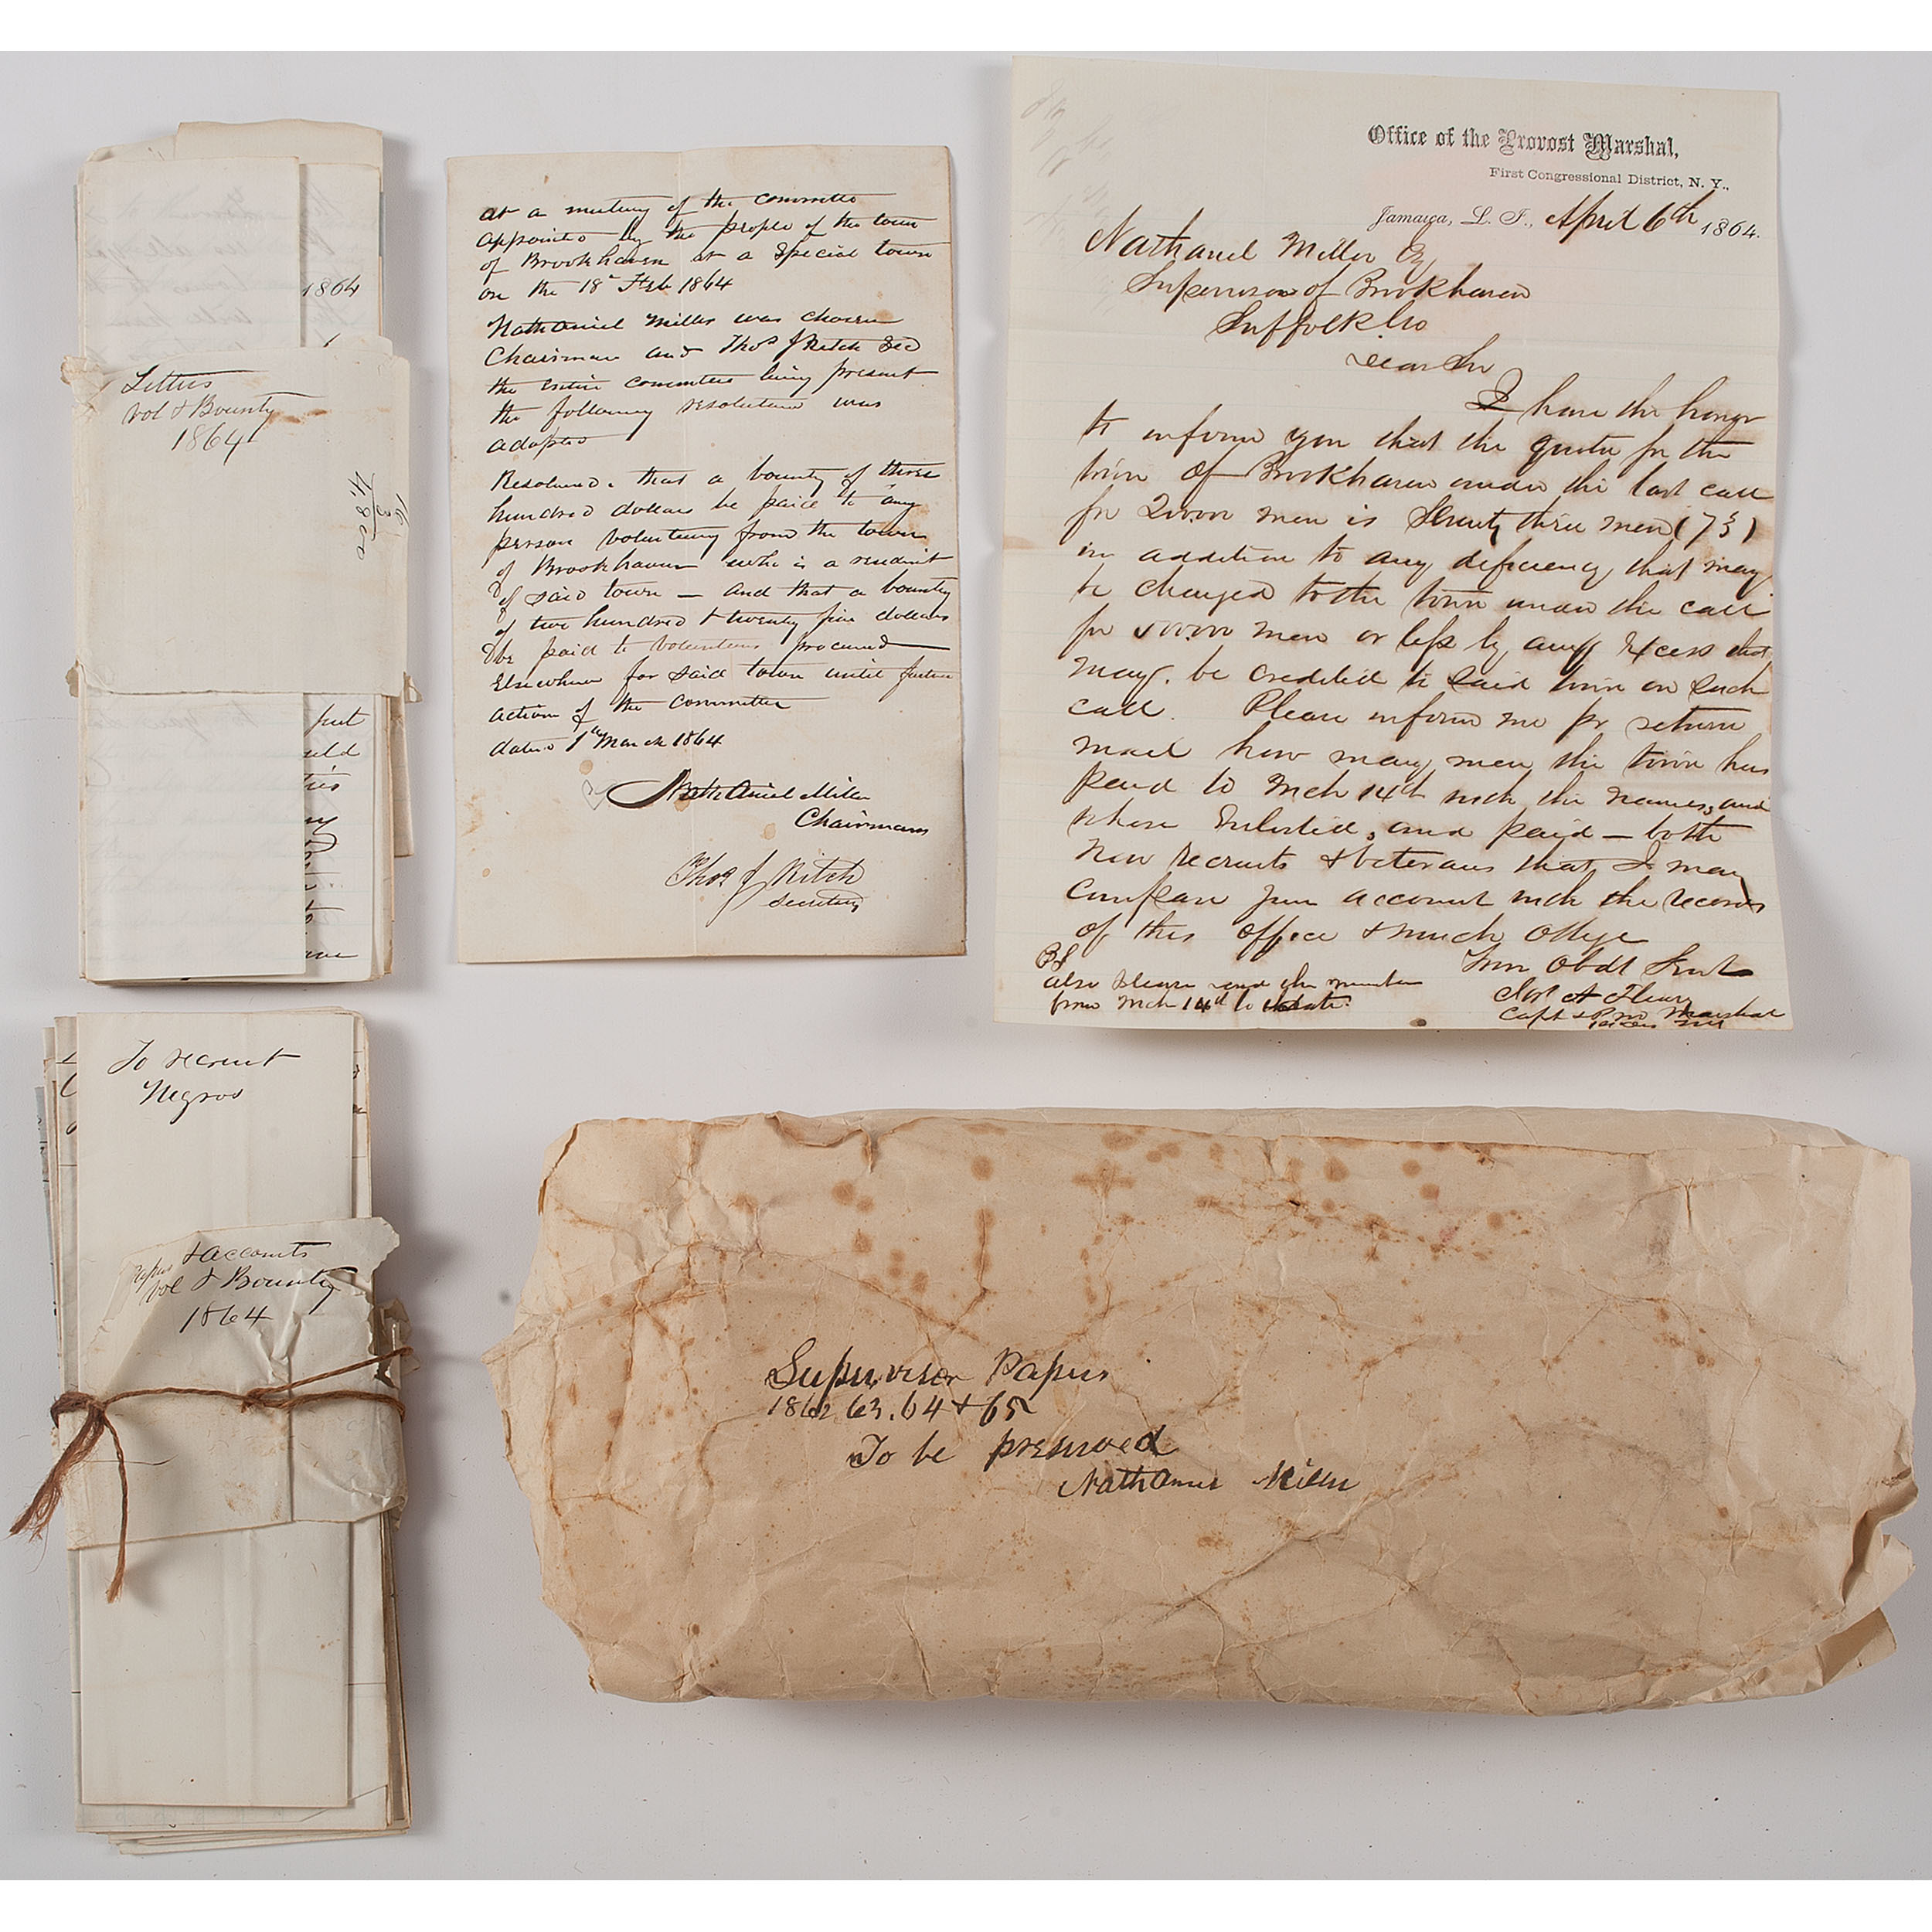 1864
Letters
Vol & Bounty
1864
put
uld
ave
at a meeting of the committe
appointed by the people of the town
of Brookhaven at a Special town
on the 18th Feb 1864
Nathaniel Miller was chosen
Chairman and Thos J Ritch Sec
the entire committee being present
the following resolution was
adopted
Resolved. that a bounty of three
hundred dollars be paid to any
person volunteering from the town
of Brookhaven who is a resident
of said town — and that a bounty
of two hundred & twenty five dollars
be paid to volunteers procured
Elsewhere for said town until further
action of the committee
dated 1st March 1864
Nathaniel Miller
Chairman
Thos J Ritch
Secretary
Office of the Provost Marshal,
First Congressional District, N. Y.,
Jamaica, L. I., April 6th 1864.
Nathaniel Miller Esq
Supervisor of Brookhaven
Suffolk Co
Dear Sir
I have the honor
to inform you that the quota for the
town of Brookhaven under the last call
for 200.000 men is Seventy three men (73)
in addition to any deficiency that may
be charged to the town under the call
for 500.000 men or less by any excess that
may. be credited to said town on such
call. Please inform me pr return
mail how many men the town has
paid to Mch 14th with the names, and
where Enlisted, and paid — both
new recruits & veterans that I may
compare your account with the records
of this office & much oblige
Your Obdt Servt
Capt & Pro Marshal
PS
also please send the number
from Mch 14th to date.
To recruit
Negros
Papers & accounts
Vol & Bounty
1864
Supervisor Papers
1862, 63. 64 & 65
To be preserved
Nathaniel Miller